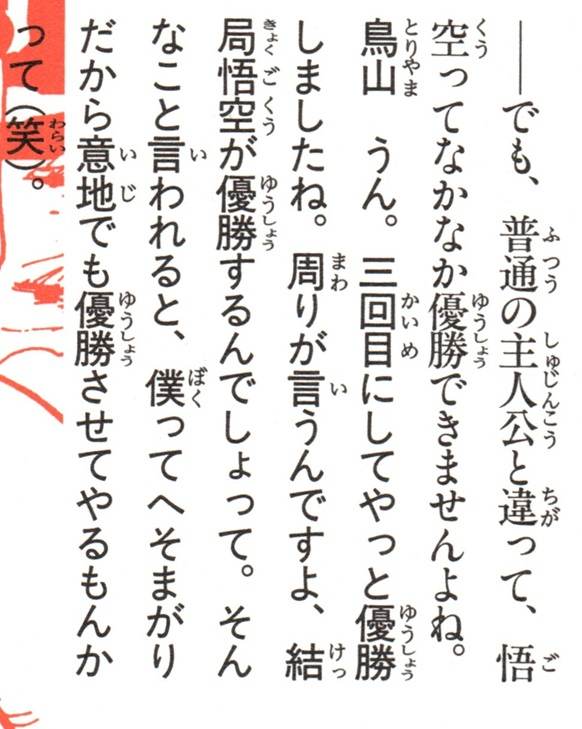 ――でも、普通の主人公と違って、悟
空ってなかなか優勝できませんよね。
鳥山　うん。三回目にしてやっと優勝
しましたね。周りが言うんですよ、結
局悟空が優勝するんでしょって。そん
なこと言われると、僕ってへそまがり
だから意地でも優勝させてやるもんか
って(笑)。